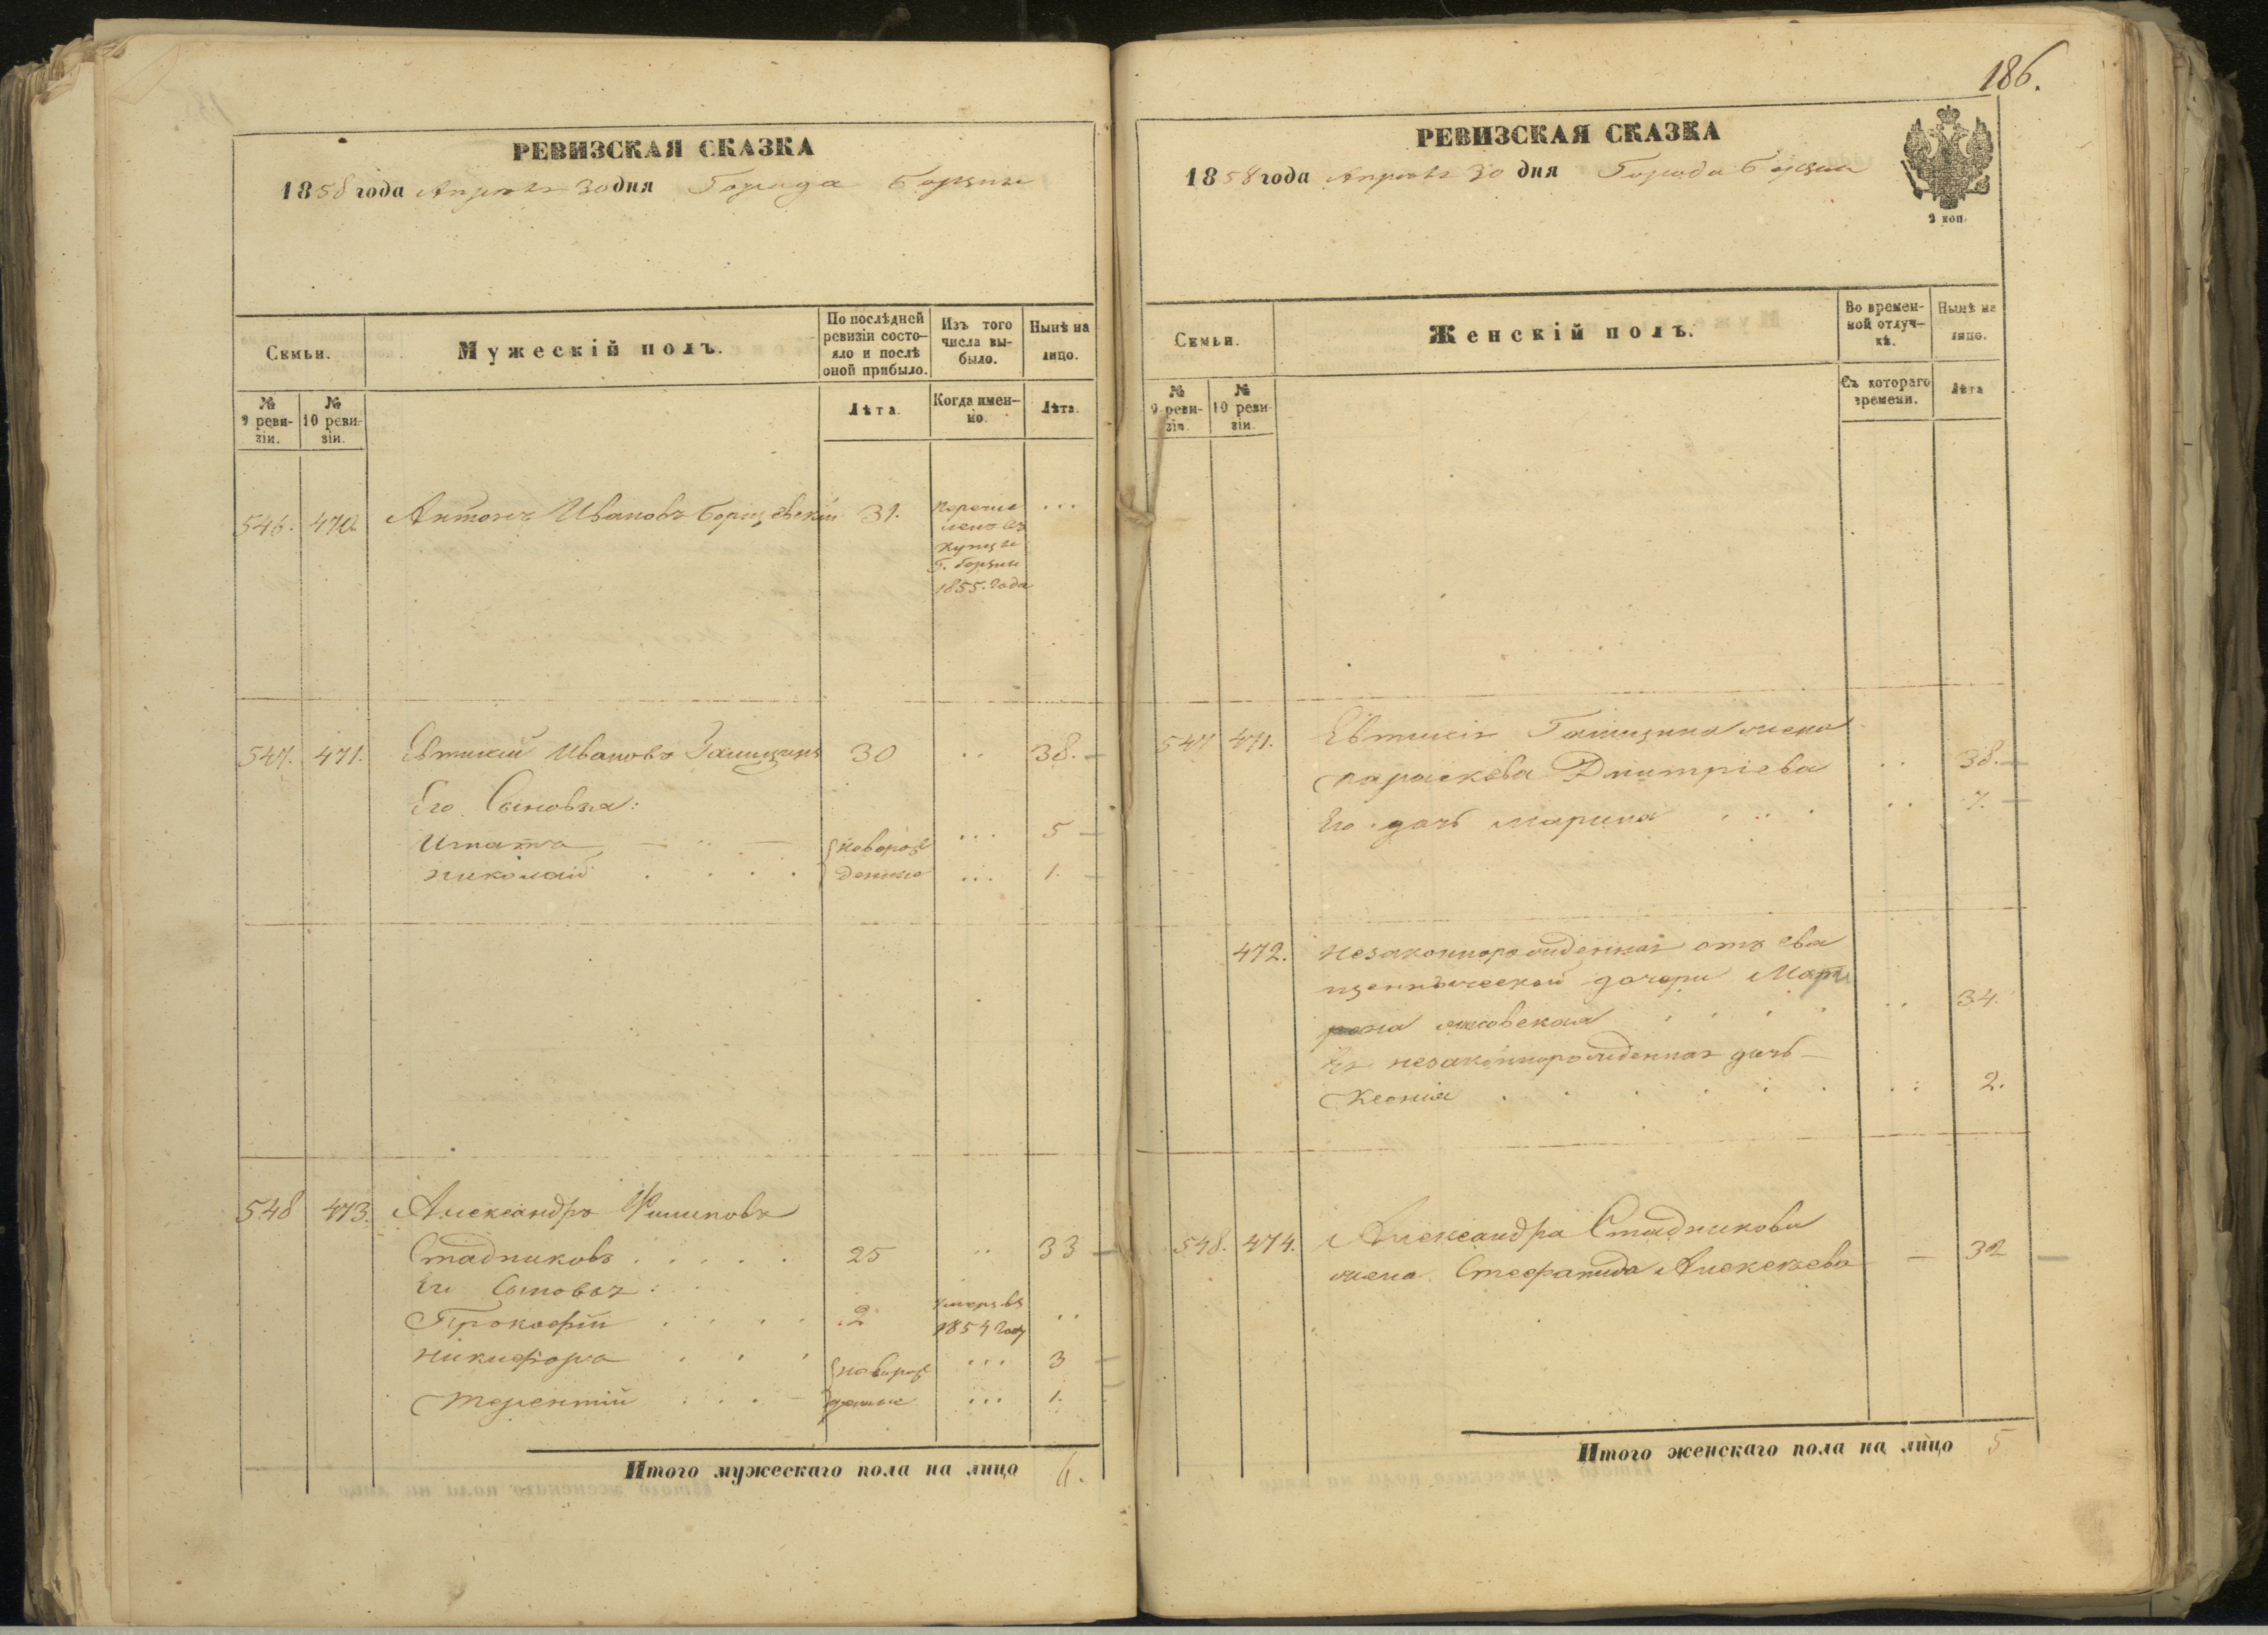 РЕВИЗСКАЯ СКАЗКА
1858 года Апреля 30 дня Города Борзны
Семьи.
Мужескій полъ.
По послѣдней ревизіи состо-
яло и послѣ оной прибыло.
Изъ того числа вы-
было.
Нынѣ на лицо.
№ 9 реви-
зіи.
№ 10 реви-
зіи.
Лѣта.
Когда имен-
но.
Лѣта.
546. 470. Антонъ Ивановъ Борщевскій 31. ...
Перечис
ленъ въ
Купцы
Г. Борзны
1855. Года
547. 471. Евтихій Ивановъ 30 .. 38.
Его Сыновья:
Игнатъ новорож ... 5
Николай денные ... 1.
548 473. Александръ Филиповъ
Стадниковъ 25 .. 33
Его Сыновья:
Прокофій 2 умеръ въ 1854 году ..
Никифоръ новорож ... 3
Терентій денные ... 1.
Итого мужескаго пола на лицо 6.
186.
РЕВИЗСКАЯ СКАЗКА
1858 года Апреля 30 дня Города Борзны
9 коп.
Семьи.
Женскій полъ.
Во времен-
ной отлуч-
кѣ.
Нынѣ на лицо.
№ 9 реви-
зіи.
№ 10 реви-
зіи.
Съ котораго времени.
Лѣта
547 471. Евтихія жена
Параскева Дмитріева .. 38.
Его дочь Марина .. 7.
472. Незаконнорожденная отъ свя
щеннической дочери Матро
.. 34.
Ея незаконнорожденная дочь
Ксенія 2.
548. 474. Александра Стадникова
жена Стефанида Алексѣева 32
Итого женскаго пола на лицо 5